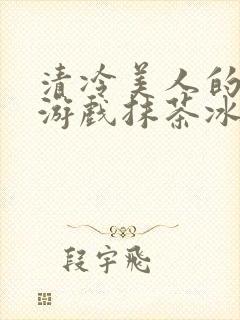 清冷美人的
游戏抹茶冰
段宇飛